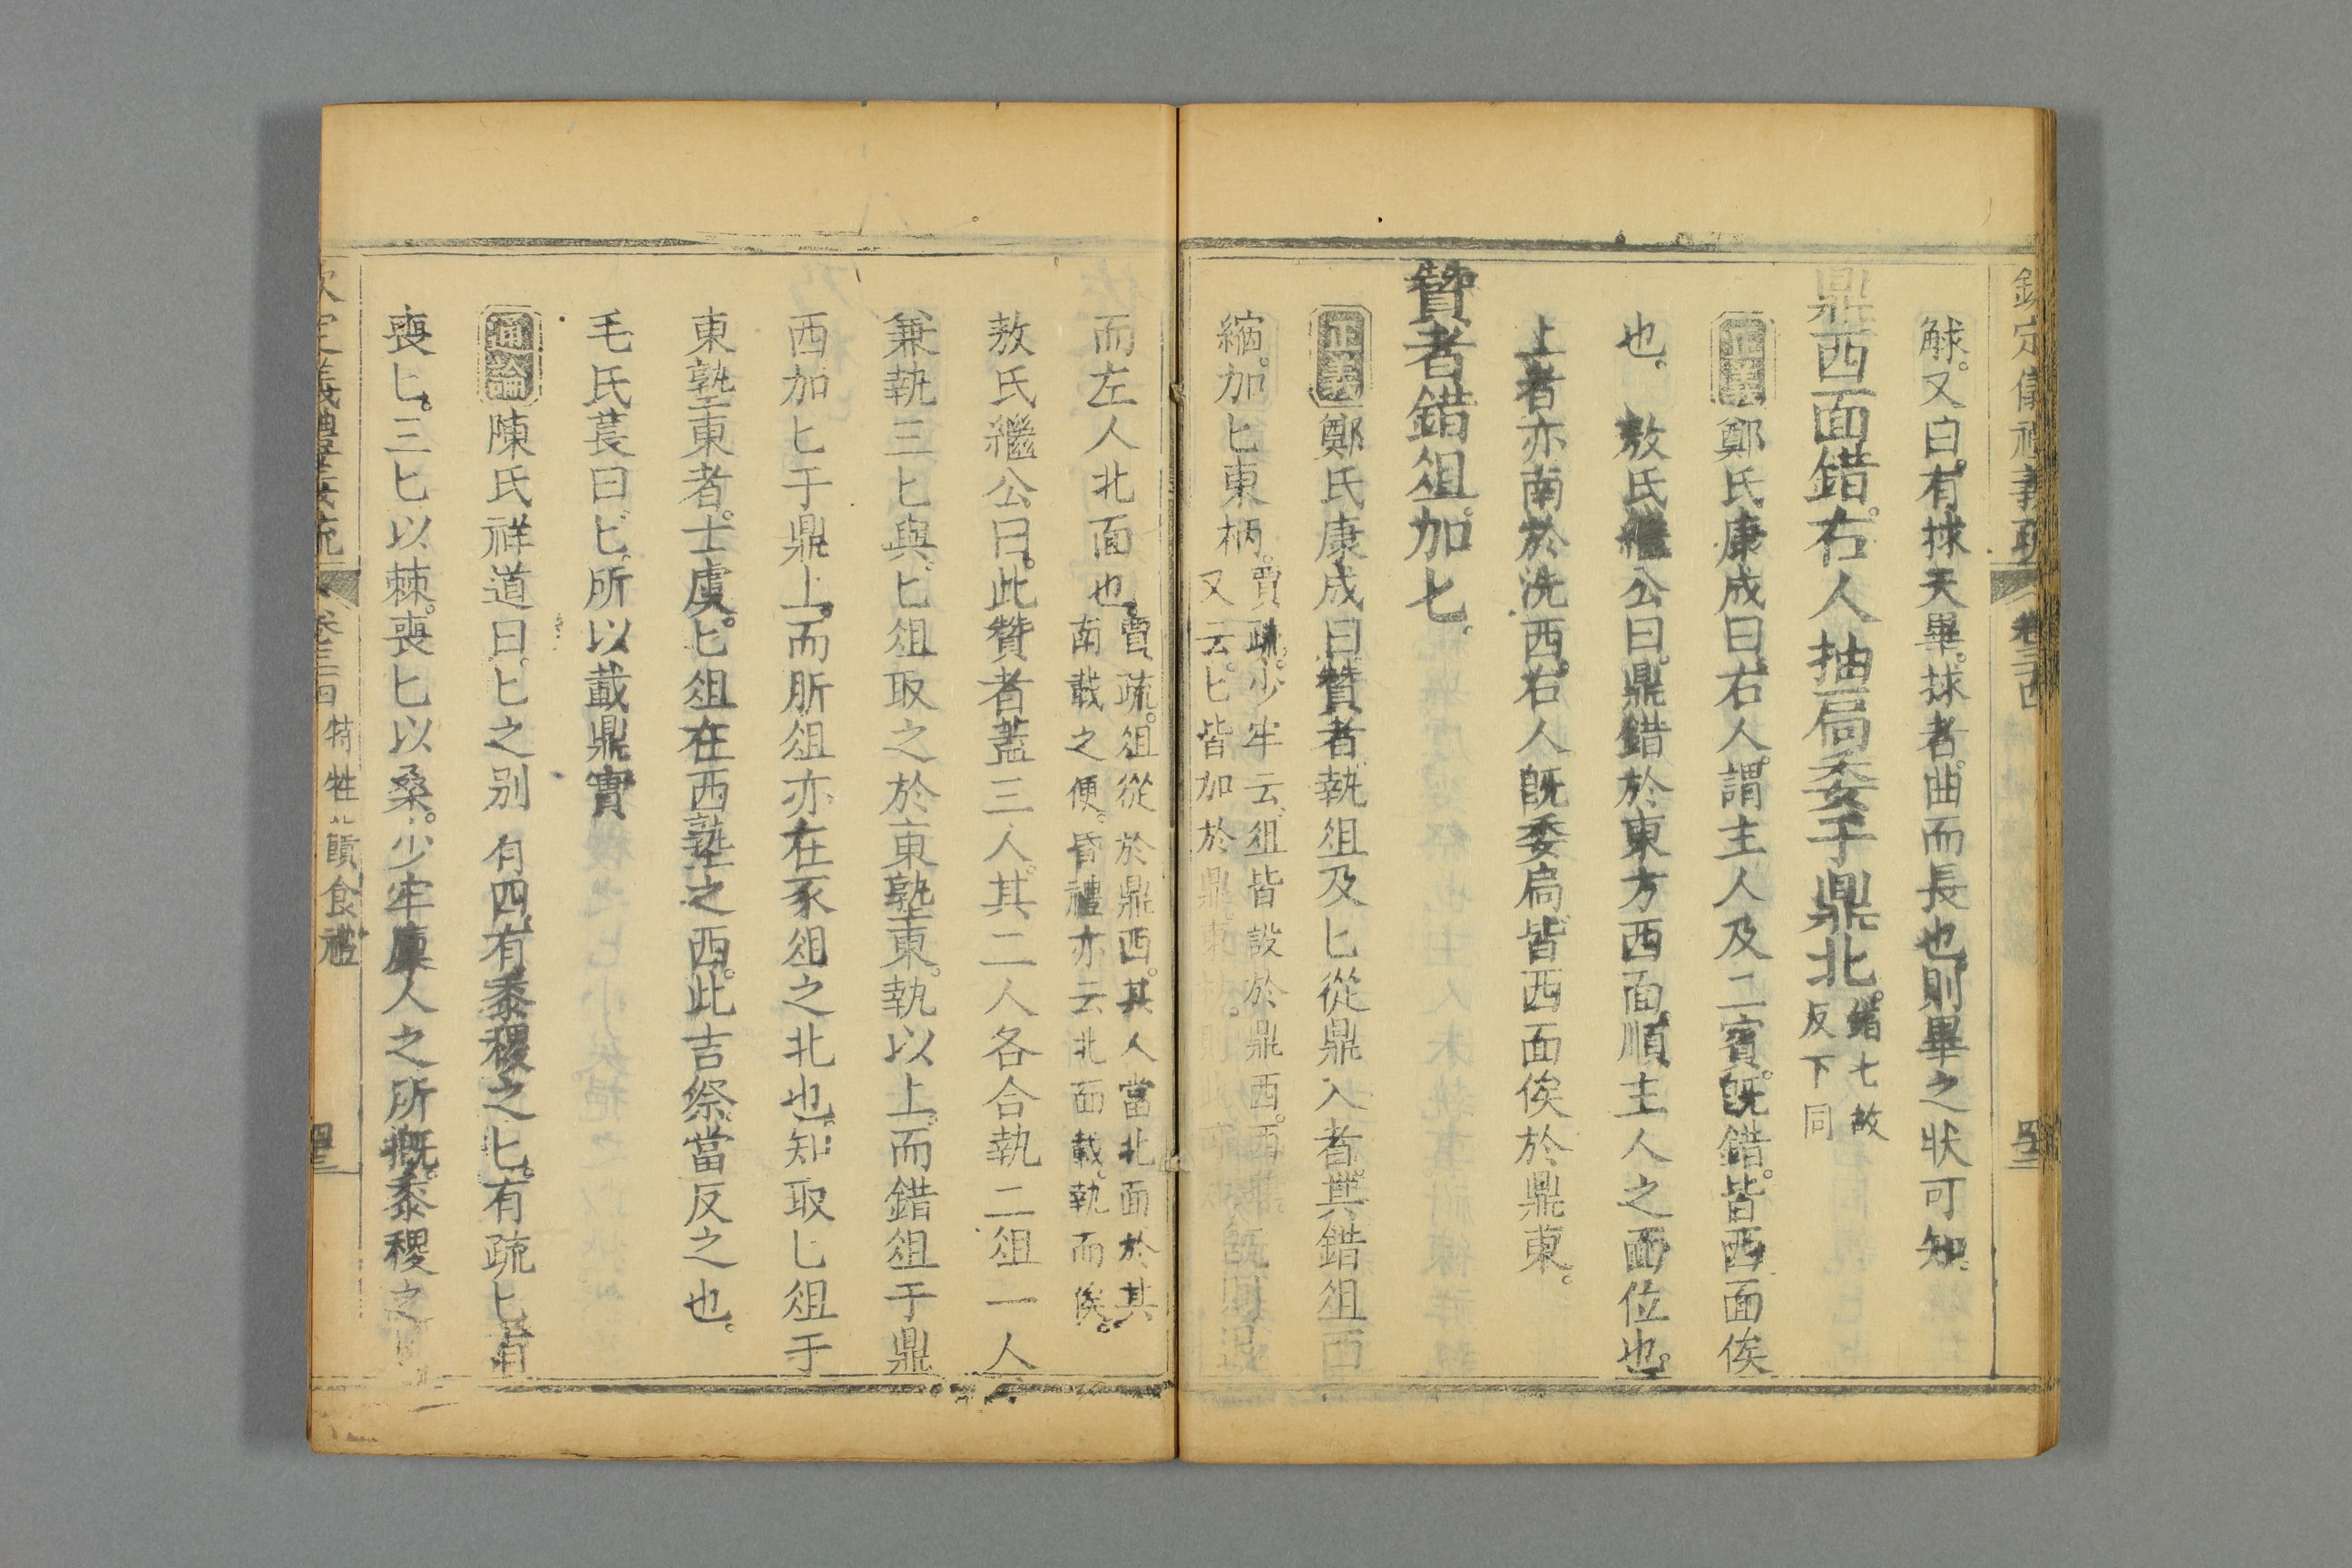 欽定儀禮義疏 卷三十四
觩。又曰。有捄天畢。捄者。曲而長也。則畢之狀可知。
鼎西面錯。右人抽扃委于鼎北。錯七故反下同
正義鄭氏康成曰。右人。謂主人及二賓。旣錯。皆西面俟
也。 敖氏繼公曰。鼎錯於東方西面。順主人之面位也。
上者亦南於洗西。右人旣委扃。皆西面俟於鼎東。
贊者錯俎。加匕。
正義鄭氏康成曰。贊者。執俎及匕從鼎入者。其錯俎。西
縮。加匕東柄。賈疏。少牢云。俎皆設於鼎西。西肆。又云。匕皆加於鼎。東枋。旣則退
而左人北面也。賈疏。俎從於鼎西。其人當北面於其南載之便。昏禮亦云北面載。執而俟。
敖氏繼公曰。此贊者蓋三人。其二人各合執二俎。一人
兼執三匕與。匕俎取之於東塾東。執以上。而錯俎于鼎
西加匕于鼎上。而肵俎亦在豕俎之北也。知取匕俎于
東塾東者。士虞。匕俎在西塾之西。此吉祭當反之也。
毛氏萇曰。匕。所以載鼎實
通論陳氏祥道曰。匕之别有四。有黍稷之匕。有疏匕。有
喪匕。三匕以棘。喪匕以桑。少牢廩人之所摡。黍稷之
欽定儀禮義疏 卷三十四 特牲饋食禮